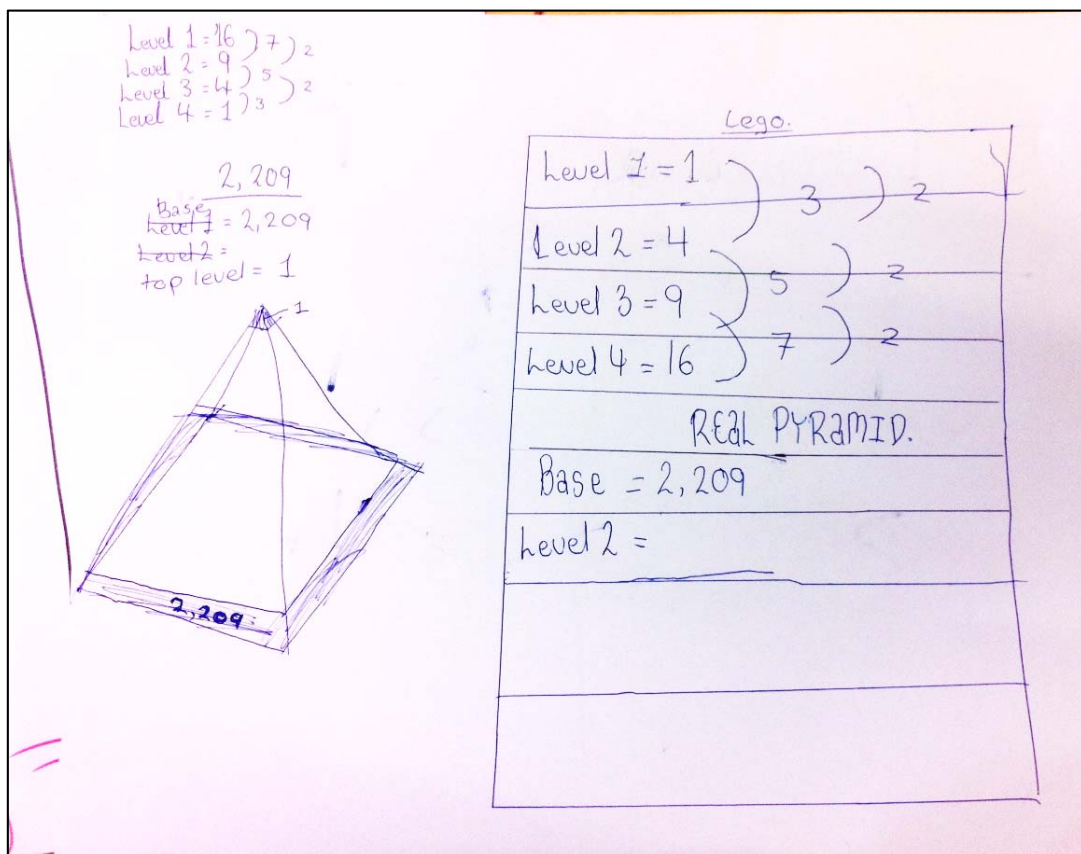 Level 1 = 16 ) 7 ) 2
Level 2 = 9 ) 5 ) 2
Level 3 = 4 ) 3
Level 4 = 1
2,209
Base
Level 1 = 2,209
Level 2 =
top level = 1
1
2,209
Lego.
Level 1 = 1
3 ) 2
Level 2 = 4
5 ) 2
Level 3 = 9
7 ) 2
Level 4 = 16
REAL PYRAMID.
Base = 2,209
Level 2 =